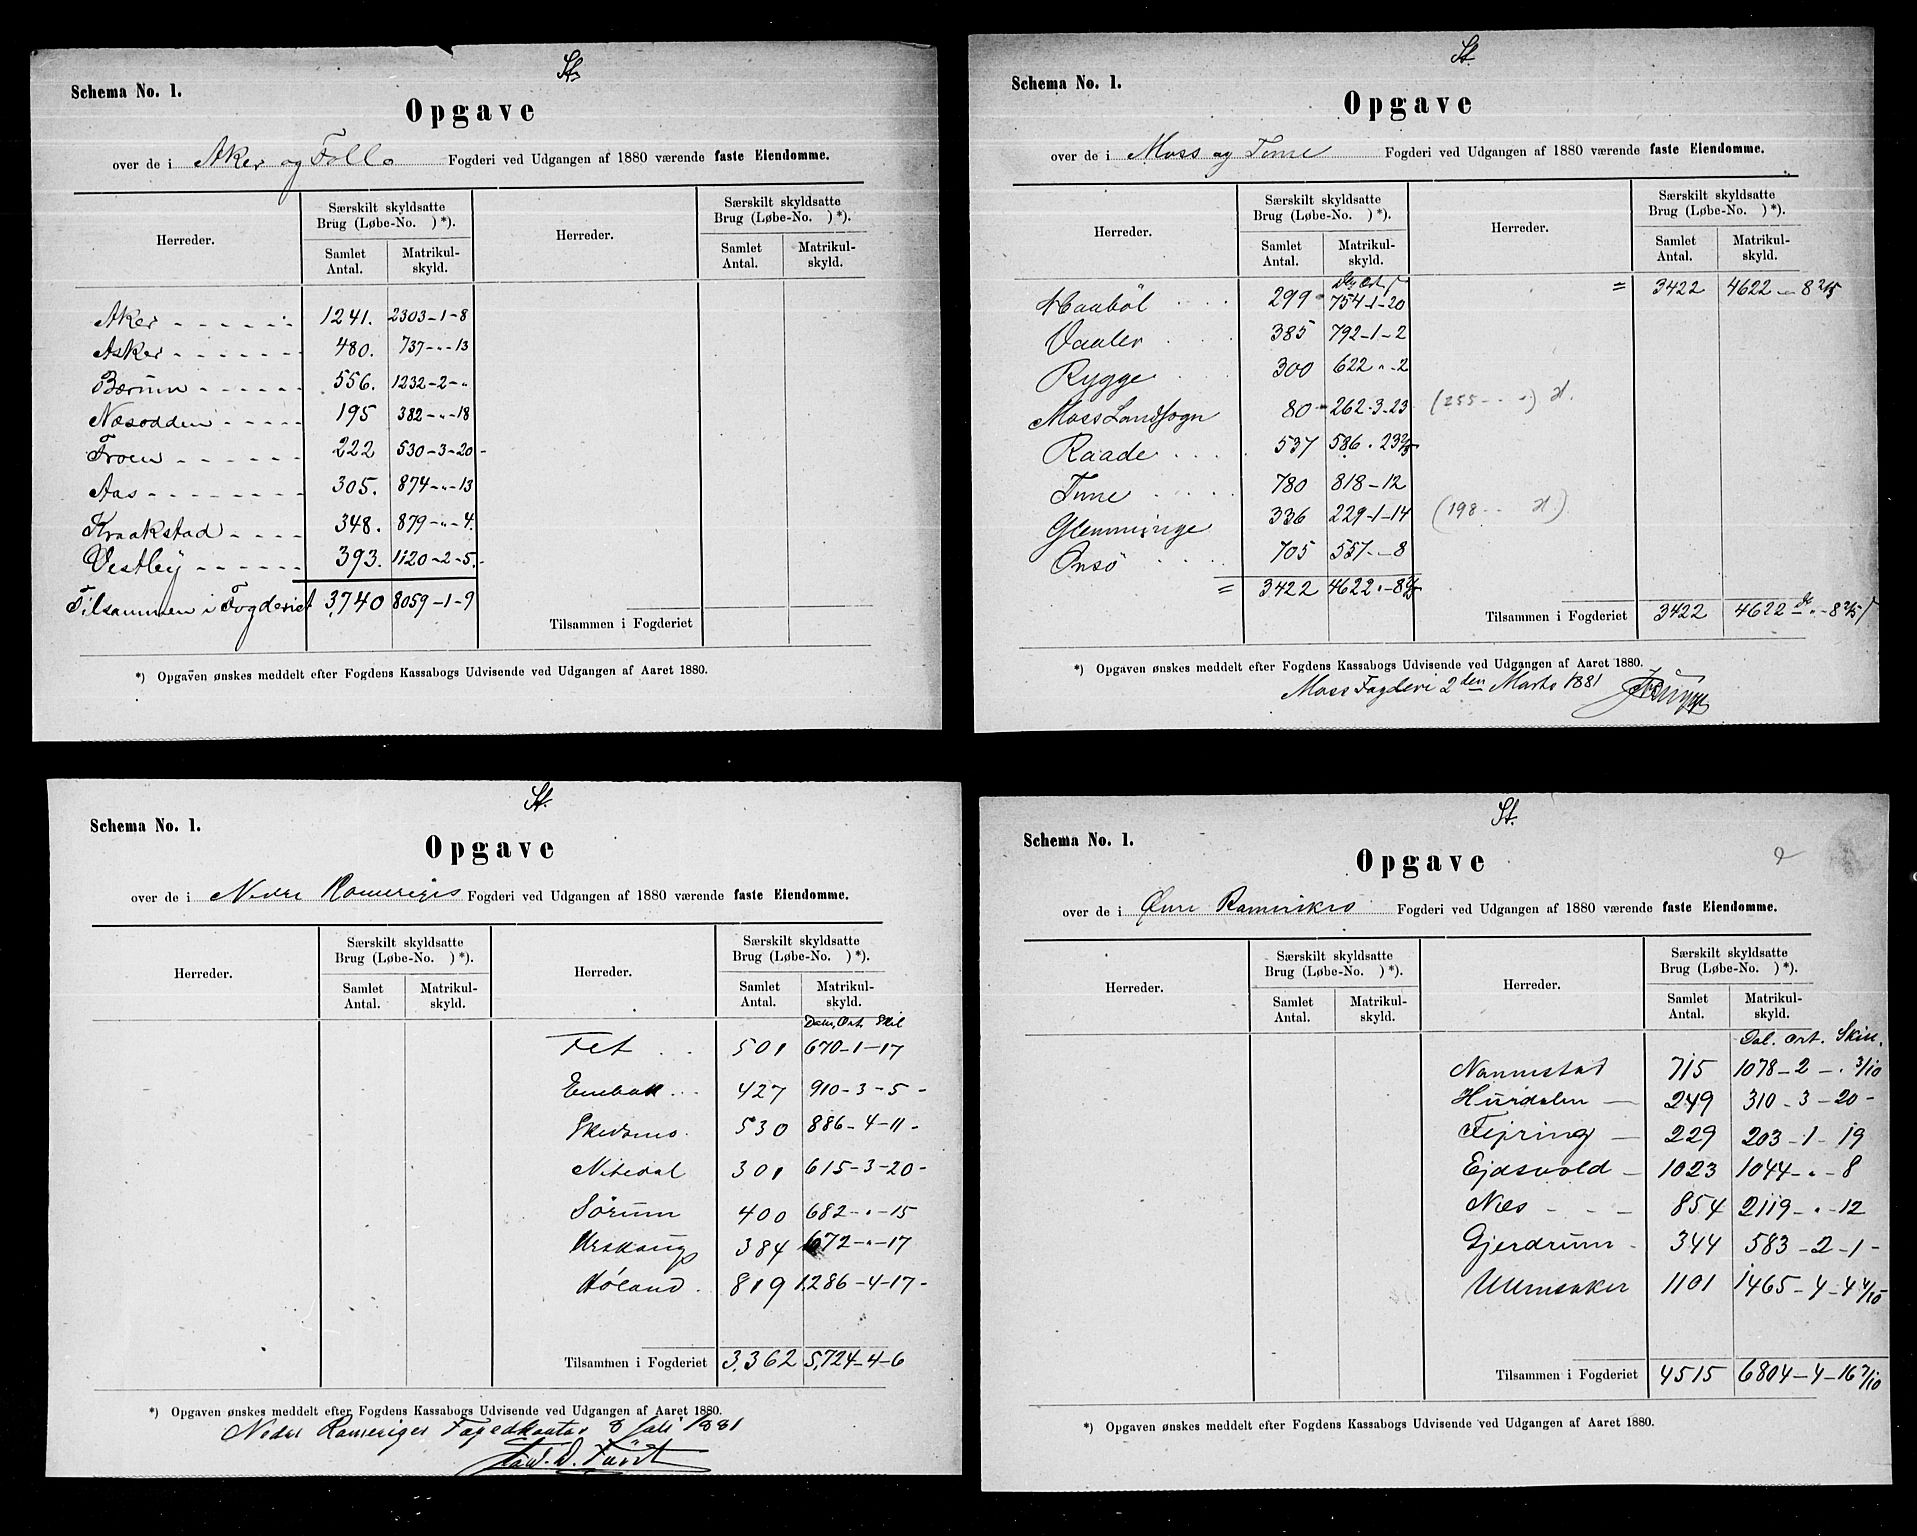 St.
Schema No. 1.
Opgave
over de i Aker og Follo Fogderi ved Udgangen af 1880 værende faste Eiendomme.
Herreder. Særskilt skyldsatte Brug (Løbe-No. ) *). Herreder. Særskilt skyldsatte Brug (Løbe-No. ) *).
Samlet Antal. Matrikul-skyld. Samlet Antal. Matrikul-skyld.
Aker 1241. 2303-1-8
Asker 480. 737-"-13
Bærum 556. 1232-2-"
Næsodden 195 382-"-18
Froen 222 530-3-20-
Aas 305. 874-"-13
Kraakstad 348. 879-"-4.
Vestby 393. 1120-2-5.-
Tilsammen i Fogderiet 3740 8059-1-9
Tilsammen i Fogderiet
*) Opgaven ønskes meddelt efter Fogdens Kassabogs Udvisende ved Udgangen af Aaret 1880.
St.
Schema No. 1.
Opgave
over de i Moss og Tune Fogderi ved Udgangen af 1880 værende faste Eiendomme.
Herreder. Særskilt skyldsatte Brug (Løbe-No. ) *). Herreder. Særskilt skyldsatte Brug (Løbe-No. ) *).
Samlet Antal. Matrikul-skyld. Samlet Antal. Matrikul-skyld.
= 3422 4622-"-8 2/5
Haabøl 299 754-1-20
Vaaler 385 792-1-2
Rygge 300 622-"-2
Moss Landsogn 80 262-3-23 (255
Raade 537 586. 23 2/5
Tune 780 818-12
Glemminge 336 229-1-14 (198
Onsö 705 557-"-8
= 3422 4622"-8 2/5
Tilsammen i Fogderiet 3422 4622 "-8 2/5
*) Opgaven ønskes meddelt efter Fogdens Kassabogs Udvisende ved Udgangen af Aaret 1880.
Moss Fogderi 2den Marts 1881
St.
Schema No. 1.
Opgave
over de i Nedre Romeriges Fogderi ved Udgangen af 1880 værende faste Eiendomme.
Herreder. Særskilt skyldsatte Brug (Løbe-No. ) *). Herreder. Særskilt skyldsatte Brug (Løbe-No. ) *).
Samlet Antal. Matrikul-skyld. Samlet Antal. Matrikul-skyld.
Daler, Ort. Skil
Fet 501 670-1-17
Enebak 427 910-3-5-
Skedsmo. 530 886-4-11-
Nitedal 301 615-3-20-
Sørum 400 682-"-15
Urskoug 384 672-"-17
Høland. 819 1286-4-17-
Tilsammen i Fogderiet 3,362 5,724-4-6
*) Opgaven ønskes meddelt efter Fogdens Kassabogs Udvisende ved Udgangen af Aaret 1880.
Nedre Romeriges Fogedkontor 8 Juli 1881
St.
Schema No. 1.
Opgave
over de i Øvre Romerikes Fogderi ved Udgangen af 1880 værende faste Eiendomme.
Herreder. Særskilt skyldsatte Brug (Løbe-No. ) *). Herreder. Særskilt skyldsatte Brug (Løbe-No. ) *).
Samlet Antal. Matrikul-skyld. Samlet Antal. Matrikul-skyld.
Dal. Ort. Skill.
Nannestad 715 1078-2-"3/10
Hurdalen 249 310-3-20-
Fejring 229 203-1-19
Ejdsvold 1023 1044-"-8
Næs 854 2119-"-12
Gjerdrum 344 583-2-1-
Ullensaker 1101 1465-4-4 4/10
Tilsammen i Fogderiet 4515 6804-4-16 7/10
*) Opgaven ønskes meddelt efter Fogdens Kassabogs Udvisende ved Udgangen af Aaret 1880.